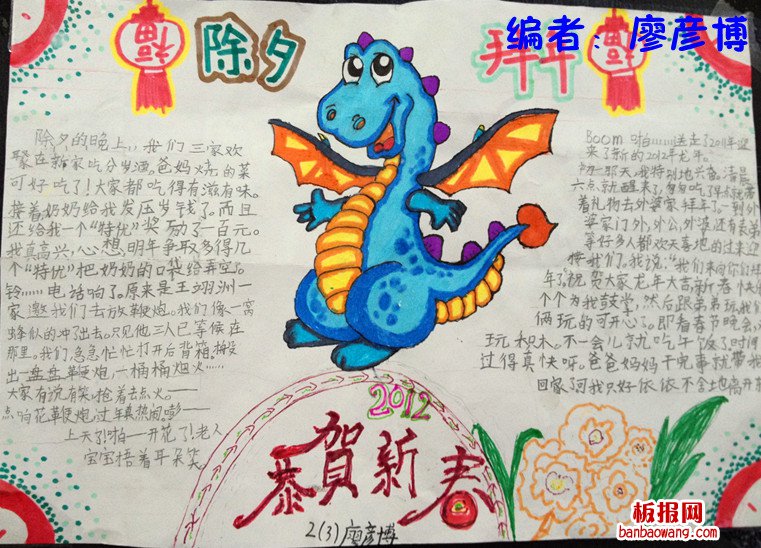 编者：廖彦博
福
除夕
拜年
福
除夕的晚上，我们三家欢
聚在新家吃分岁酒。爸妈烧的菜
可好吃了！大家都吃得有滋有味。
接着奶奶给我发压岁钱了。而且
还给我一个“特优”奖励了一百元。
我真高兴，心想明年争取多得几
个“特优”把奶奶的口袋给弄空。
铃……电话响了。原来是王翊洲一
家邀我们去放鞭炮。我们像一窝
蜂似的冲了出去。只见他三人已等候在
那里。我们急急忙忙打开后背箱搬
出一盘盘鞭炮，一桶桶烟火……
大家有说有笑，抢着去点火。——
点响花鞭炮，过年真热闹，嘭——
上天了！啪——开花了！老人
宝宝捂着耳朵笑。
Boom 啪……送走了2011年迎
来了新的2012年龙年。
初一那天，我特别地兴奋。清晨
六点就醒来了，匆匆吃了早点就带
着礼物去外婆家拜年了。一到外
婆家门外，外公，外婆还有表弟
等好多人都欢天喜地的过来迎
接我们。我说，“我们来向你们拜
年，祝贺大家龙年大吉，新春快
个个为我鼓掌，然后跟弟弟玩，我们
俩玩的可开心了。即看春节晚会，
玩积木。不一会儿就吃午饭了时间
过得真快呀。爸爸妈妈干完事就带我
回家了，可我只好依依不舍地离开
2012
恭贺新春
2(3)廖彦博
板报网
banbaowang.com